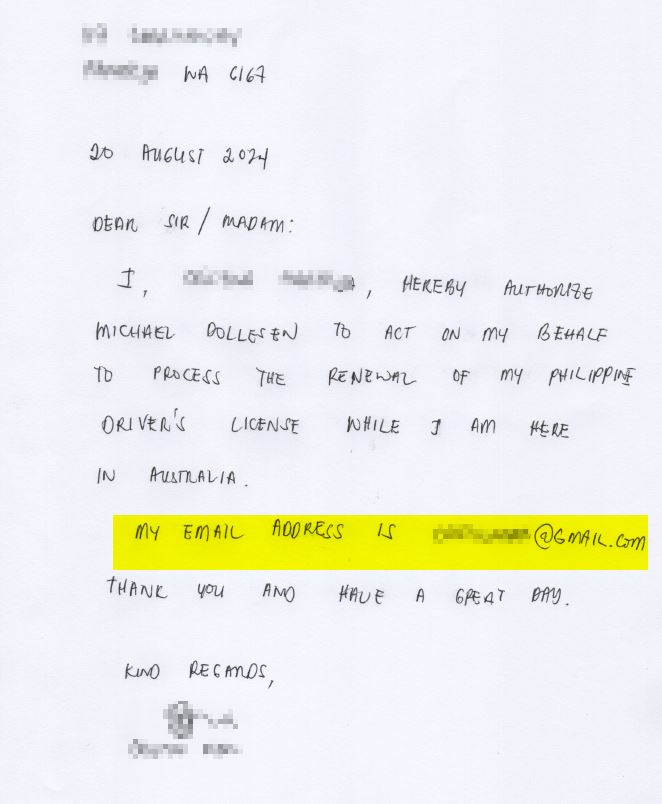 WA 6167
20 AUGUST 2024
DEAR SIR / MADAM:
I, , HEREBY AUTHORIZE
MICHAEL DOLLESEN TO ACT ON MY BEHALF
TO PROCESS THE RENEWAL OF MY PHILIPPINE
DRIVER'S LICENSE WHILE I AM HERE
IN AUSTRALIA.
MY EMAIL ADDRESS IS @GMAIL.COM
THANK YOU AND HAVE A GREAT DAY.
KIND REGARDS,